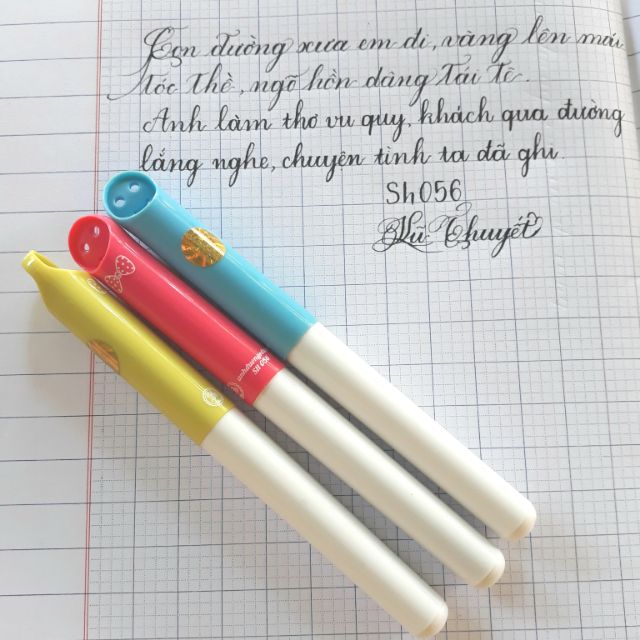 Con đường xưa em đi, vàng lên mái
tóc thề, ngõ hồn dâng Tái Tê.
Anh làm thơ vu quy, khách qua đường
lắng nghe, chuyện tình ta đã ghi.
Sh056
SH 056